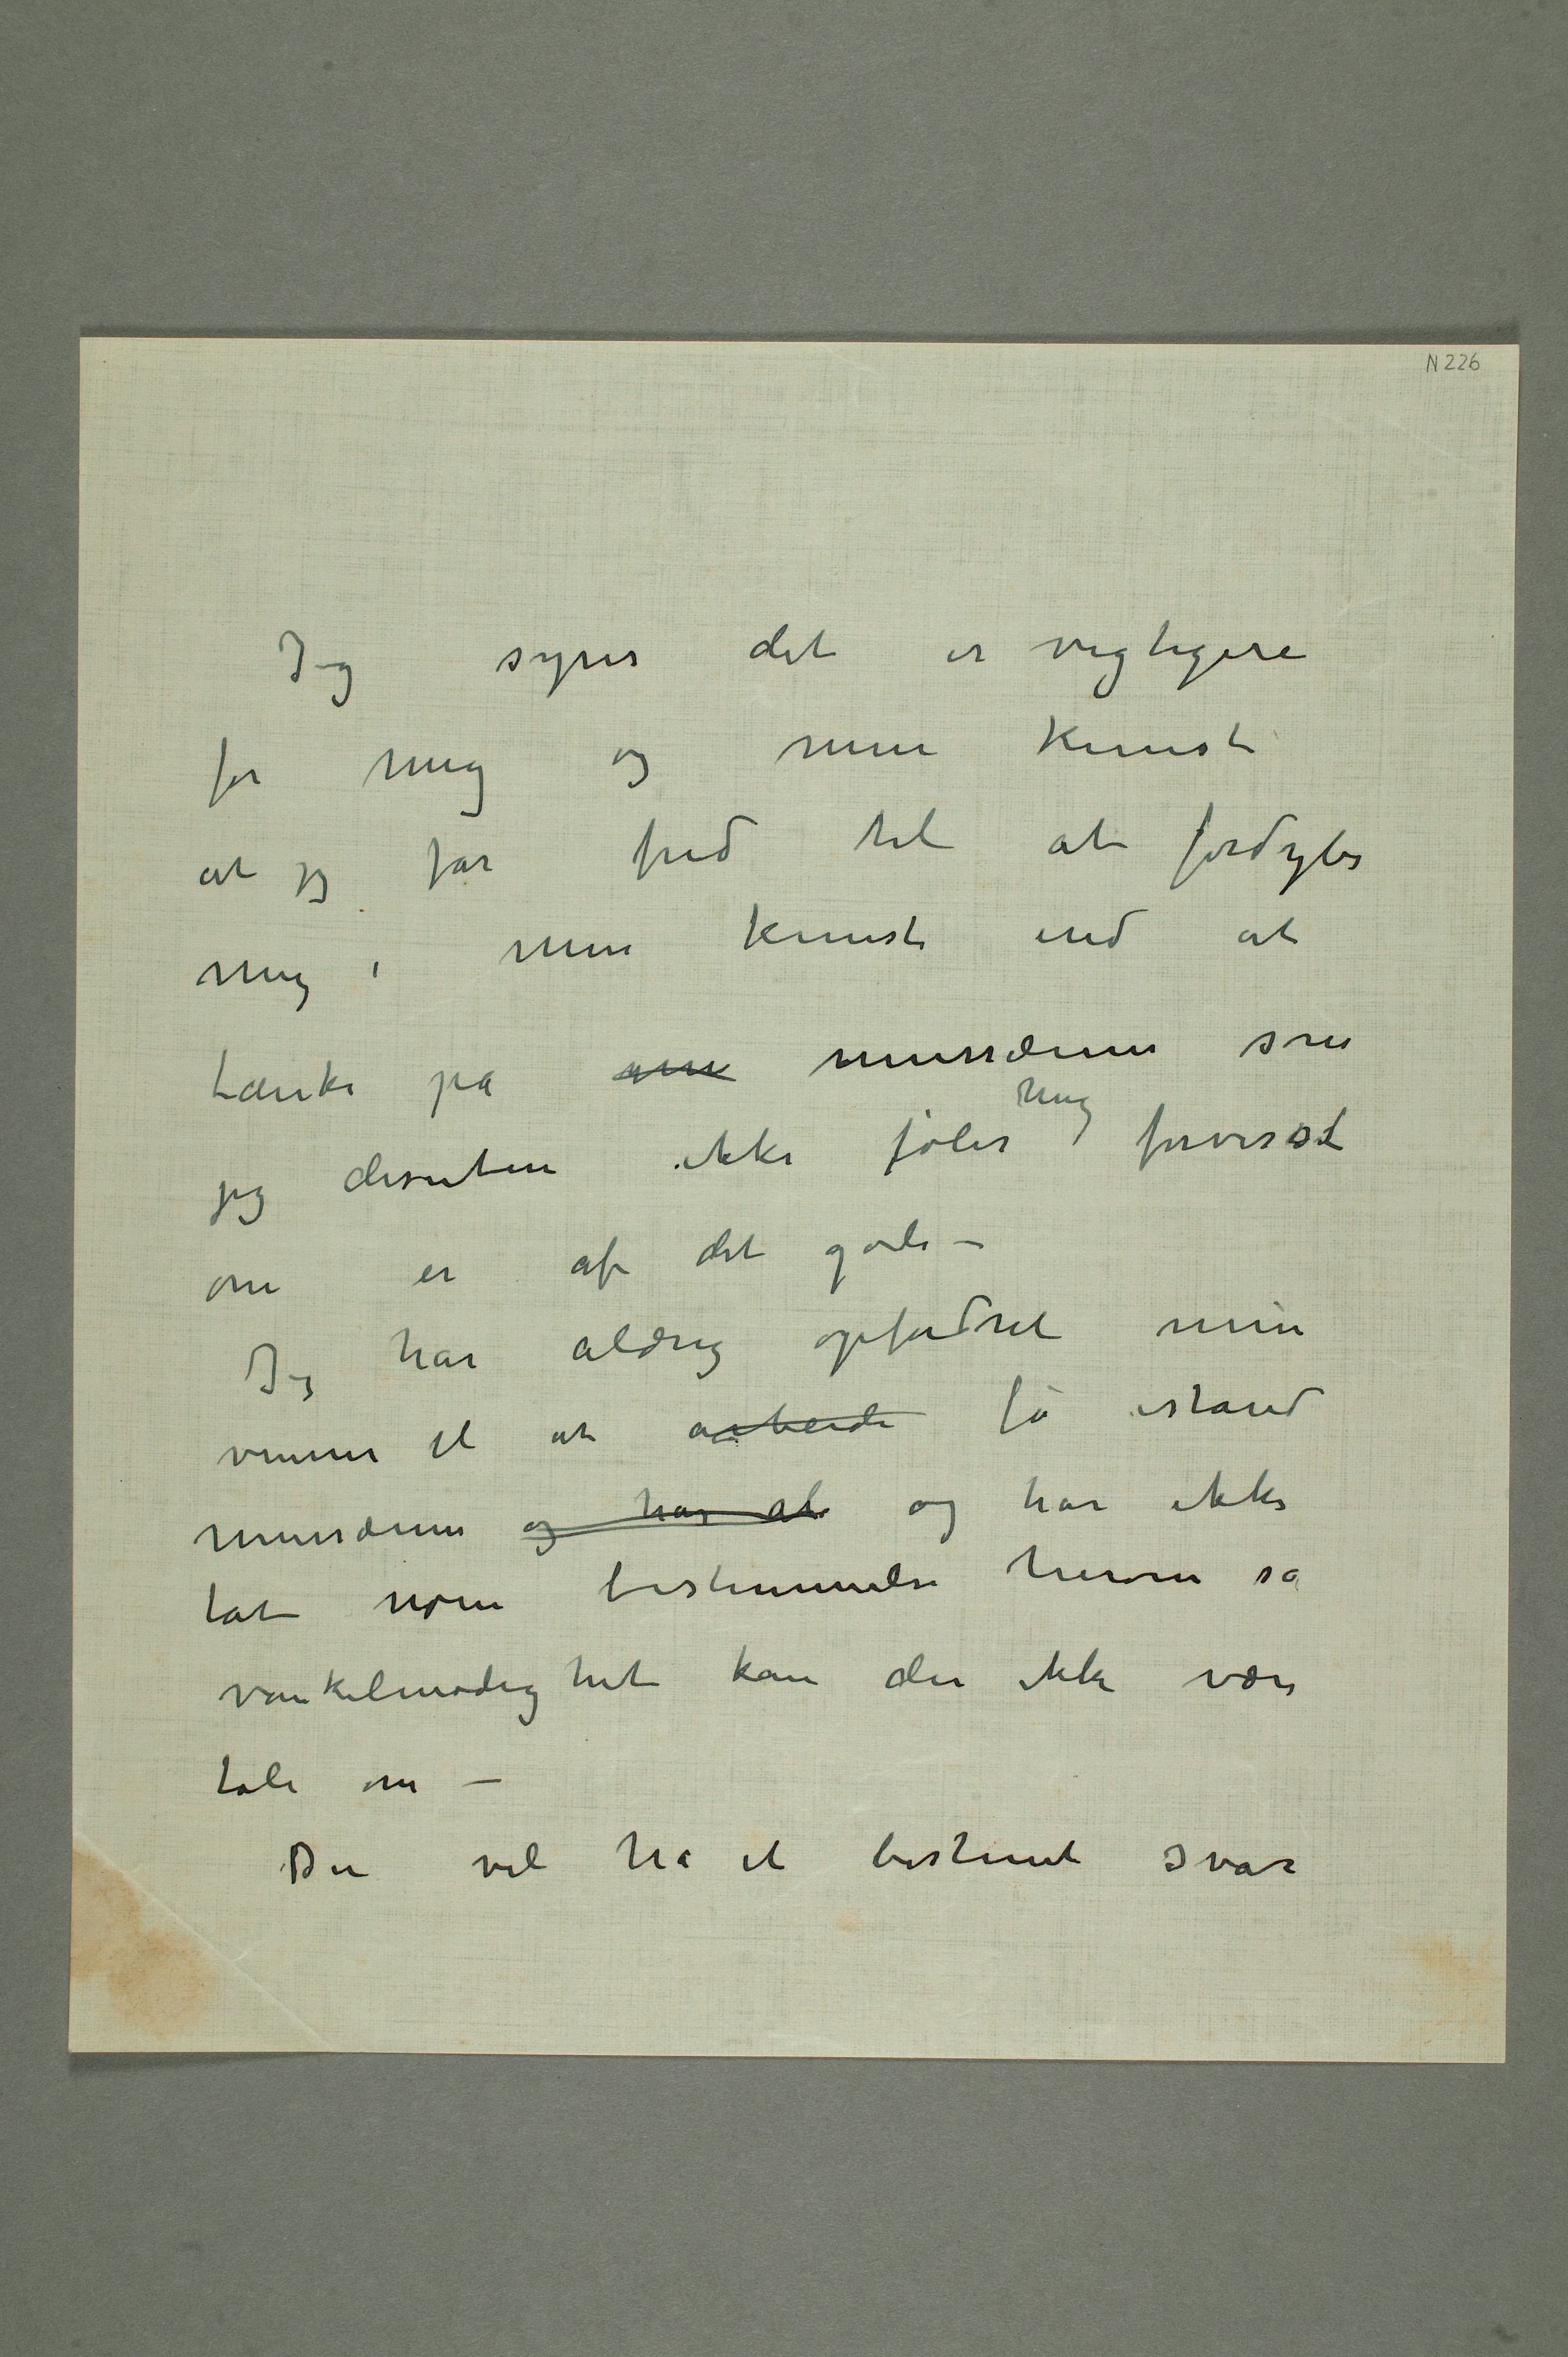 N 226
Jeg synes det er vigtigere
for mig og min kunst
at jeg får fred til at fordybe
mig i min kunst end at
tænke på om mussæum som
jeg desuten ikke føler mig forvisset
om er af det gode –
Jeg har aldrig opfordret mine
venner til at arbeide få istand
mussæum og har al og har ikke
tat noen bestemmelse herom så
vankelmodighet kan der ikke være
tale om –
Du vil ha et bestemt svar